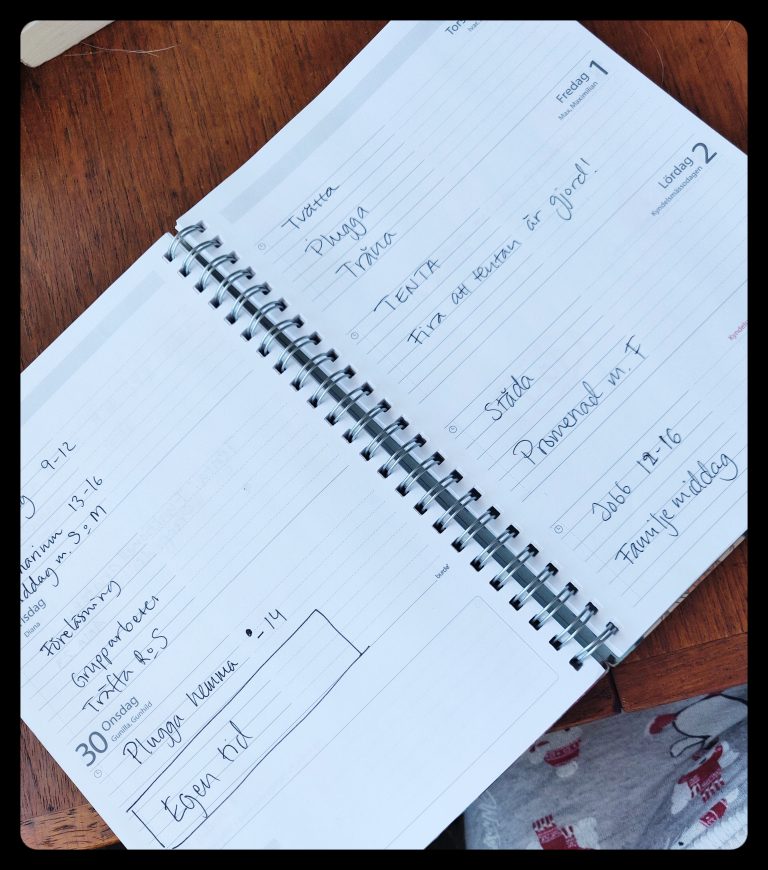 9-12
13-16
m. S o M
Diana
Föreläsning
Grupparbete
Träffa R o S
30 Onsdag
Gunilla, Gunhild
Plugga hemma -14
Egen tid
burde
Tvätta
Plugga
Träna
Fredag 1
Max, Maximilian
TENTA
Fira att tentan är gjord!
Lördag 2
Kyndelsmässodagen
Städa
Promenad m. F
Jobb 12-16
Familjemiddag